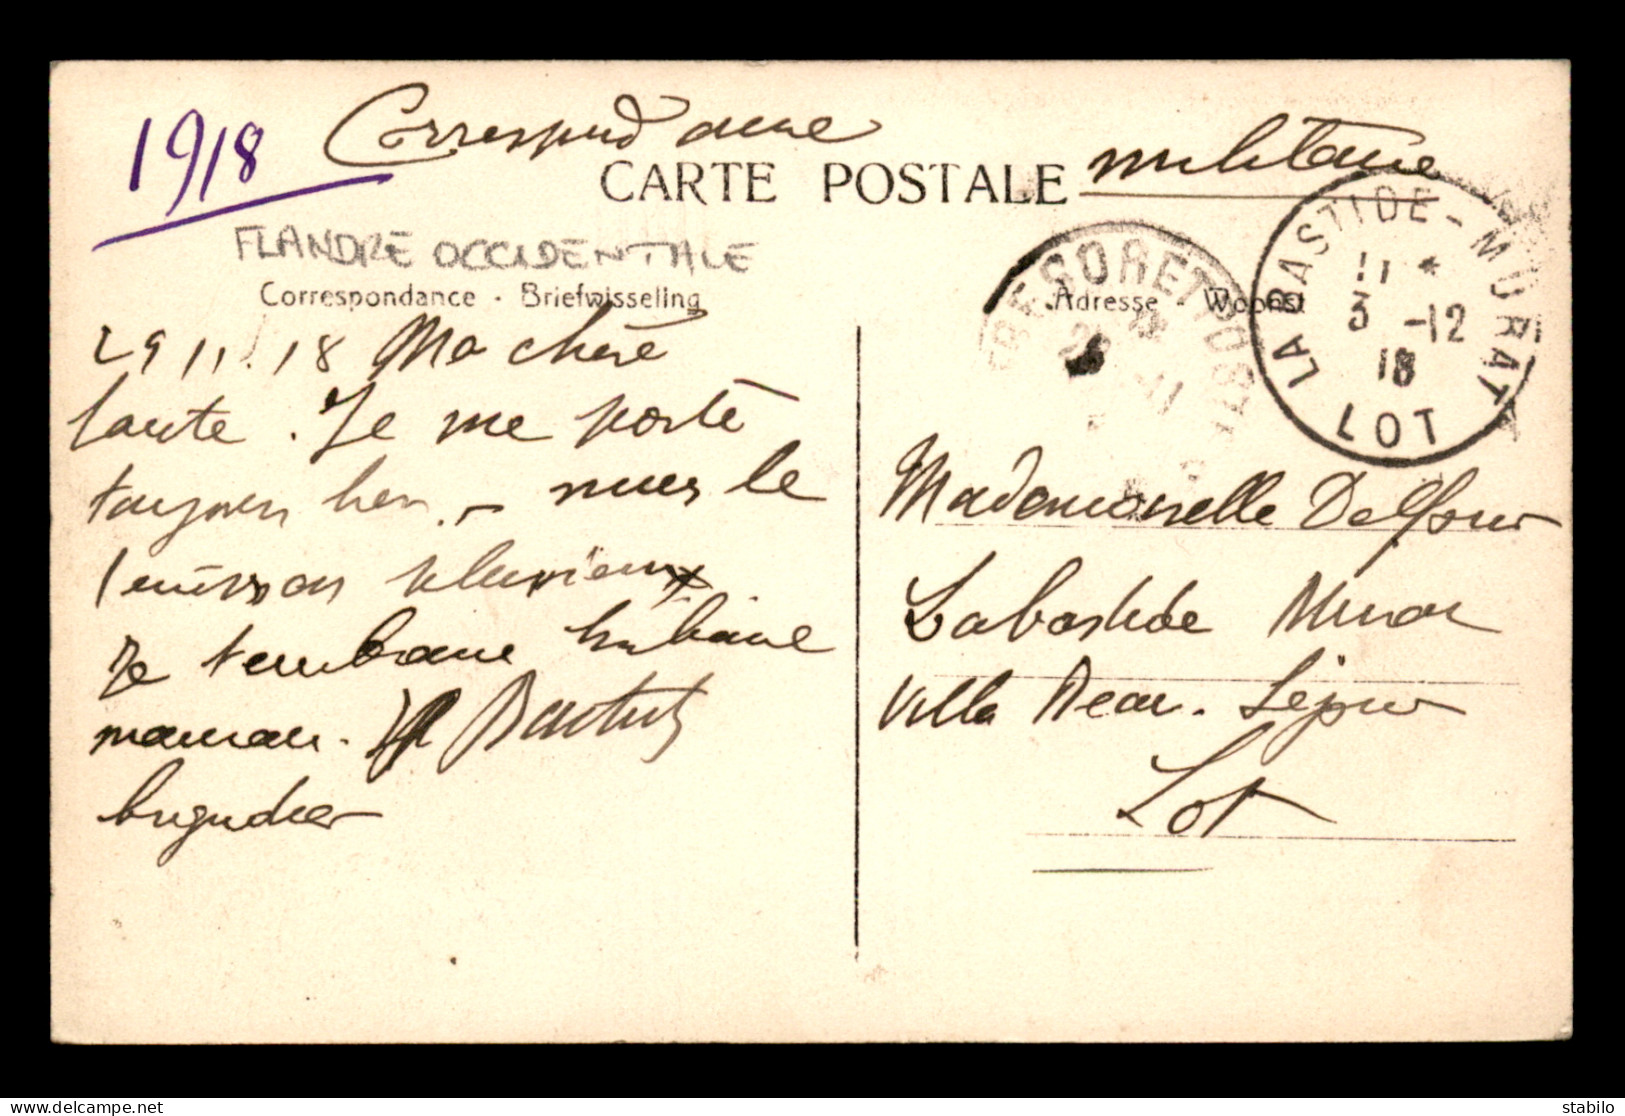 1918 Correspondance militaire
CARTE POSTALE
FLANDRE OCCIDENTALE
Correspondance - Briefwisseling
Adresse Woonst
TRESOR ET POSTES
-11
LABASTIDE-MURAT
11 *
3 -12
18
LOT
29 11 . 18 Ma chère
tante . Je me porte
toujours bien . - mais le
pluvieux
Je t'embrasse
maman .
brigadier
Mademoiselle Delfour
Labastide Murat
Villa Beau - Séjour
Lot
stabilo